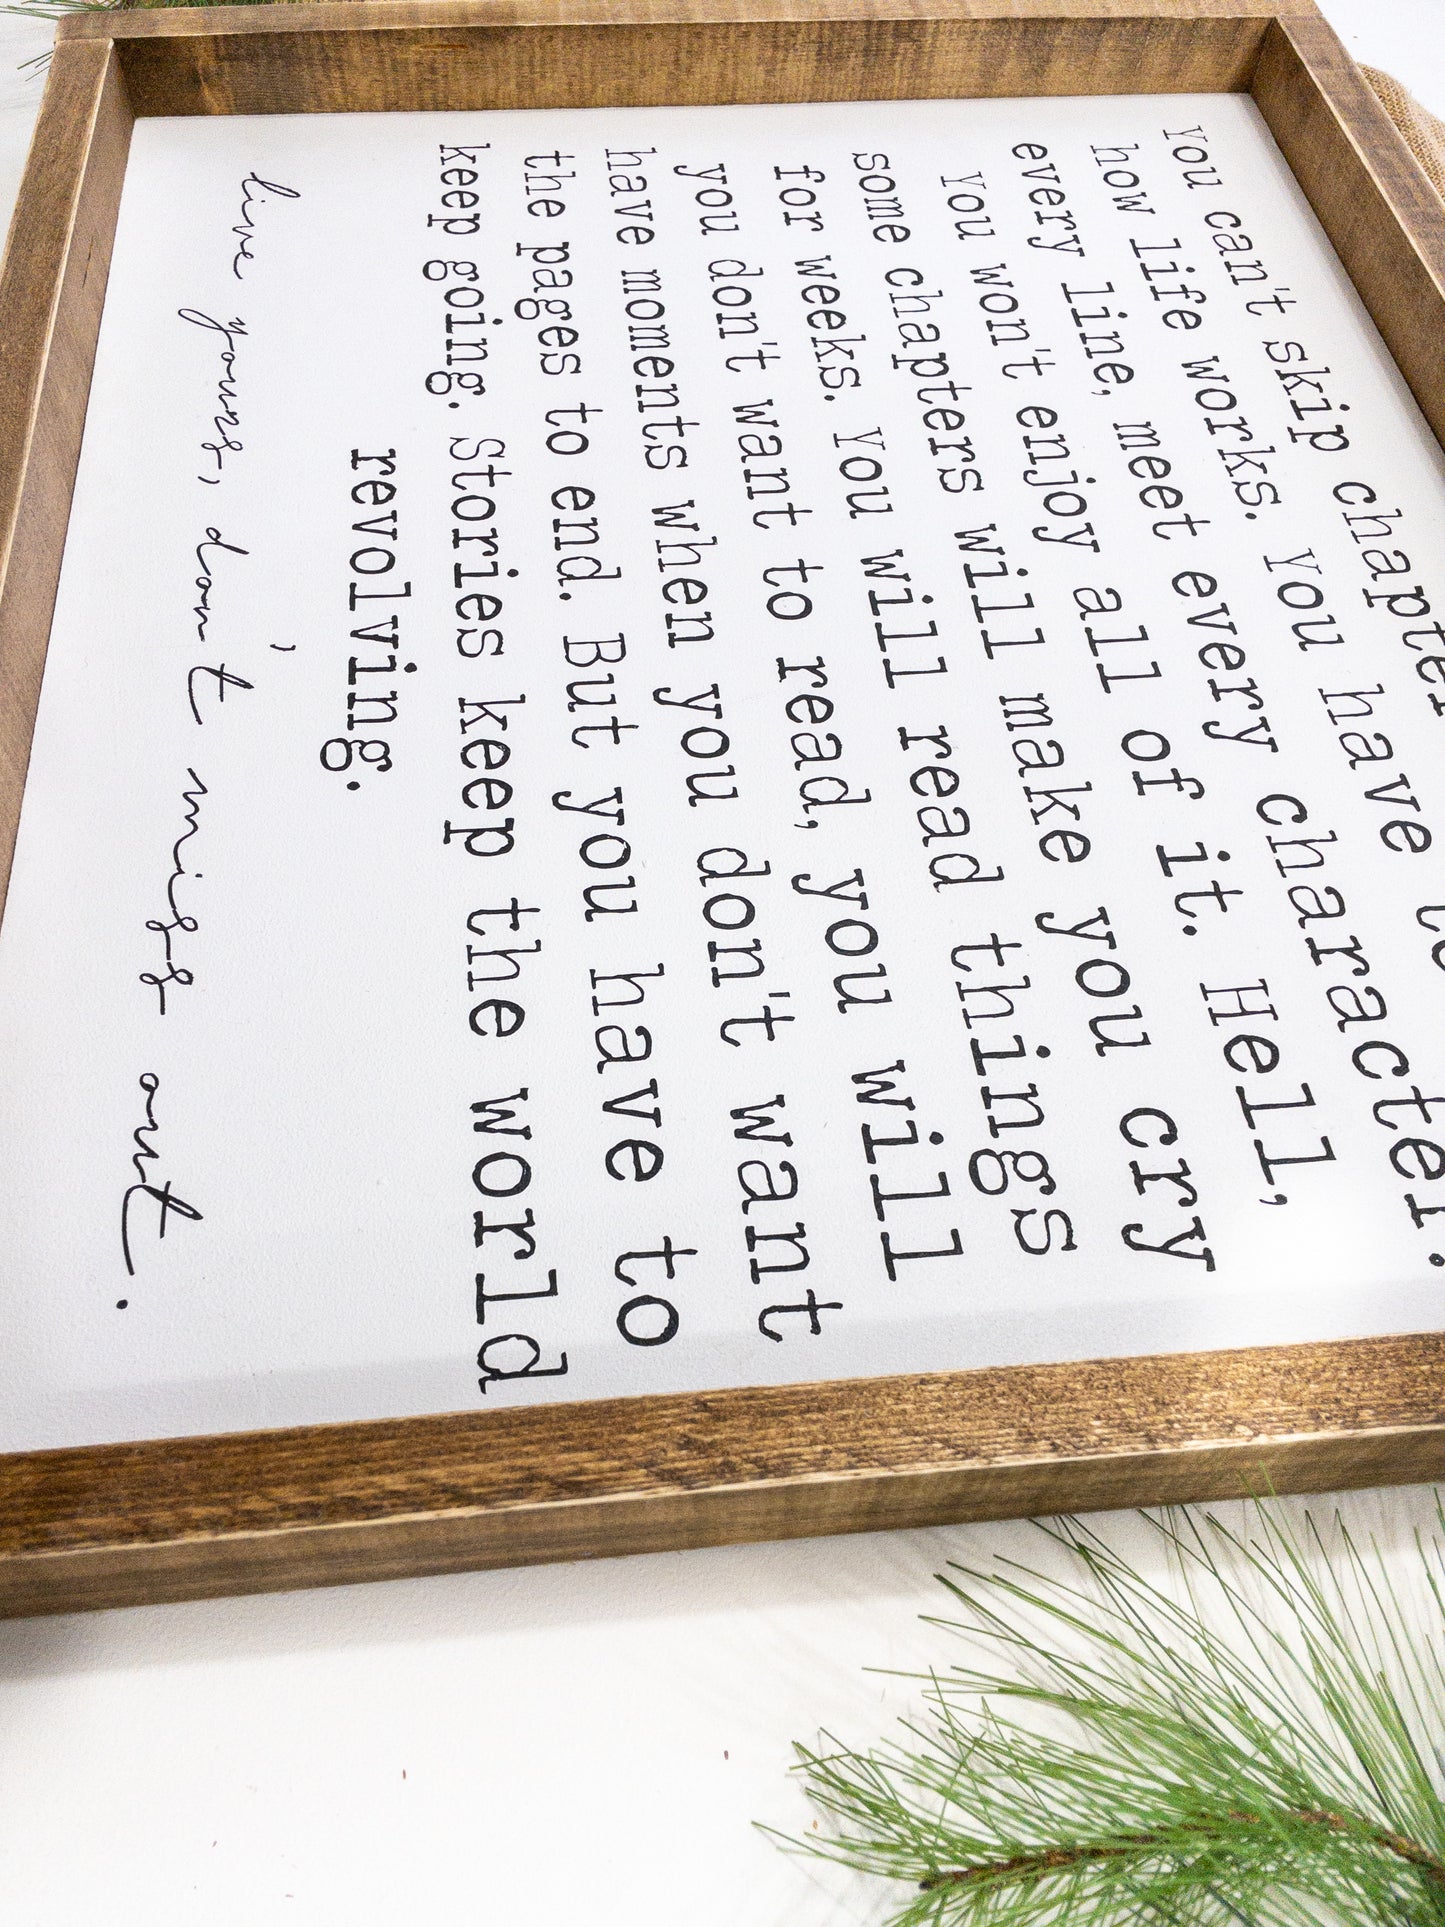 You can't skip chapter
how life works. You have to
every line, meet every character.
You won't enjoy all of it. Hell,
some chapters will make you cry
for weeks. You will read things
you don't want to read, you will
have moments when you don't want
the pages to end. But you have to
keep going. Stories keep the world
revolving.
live yours, don't miss out.